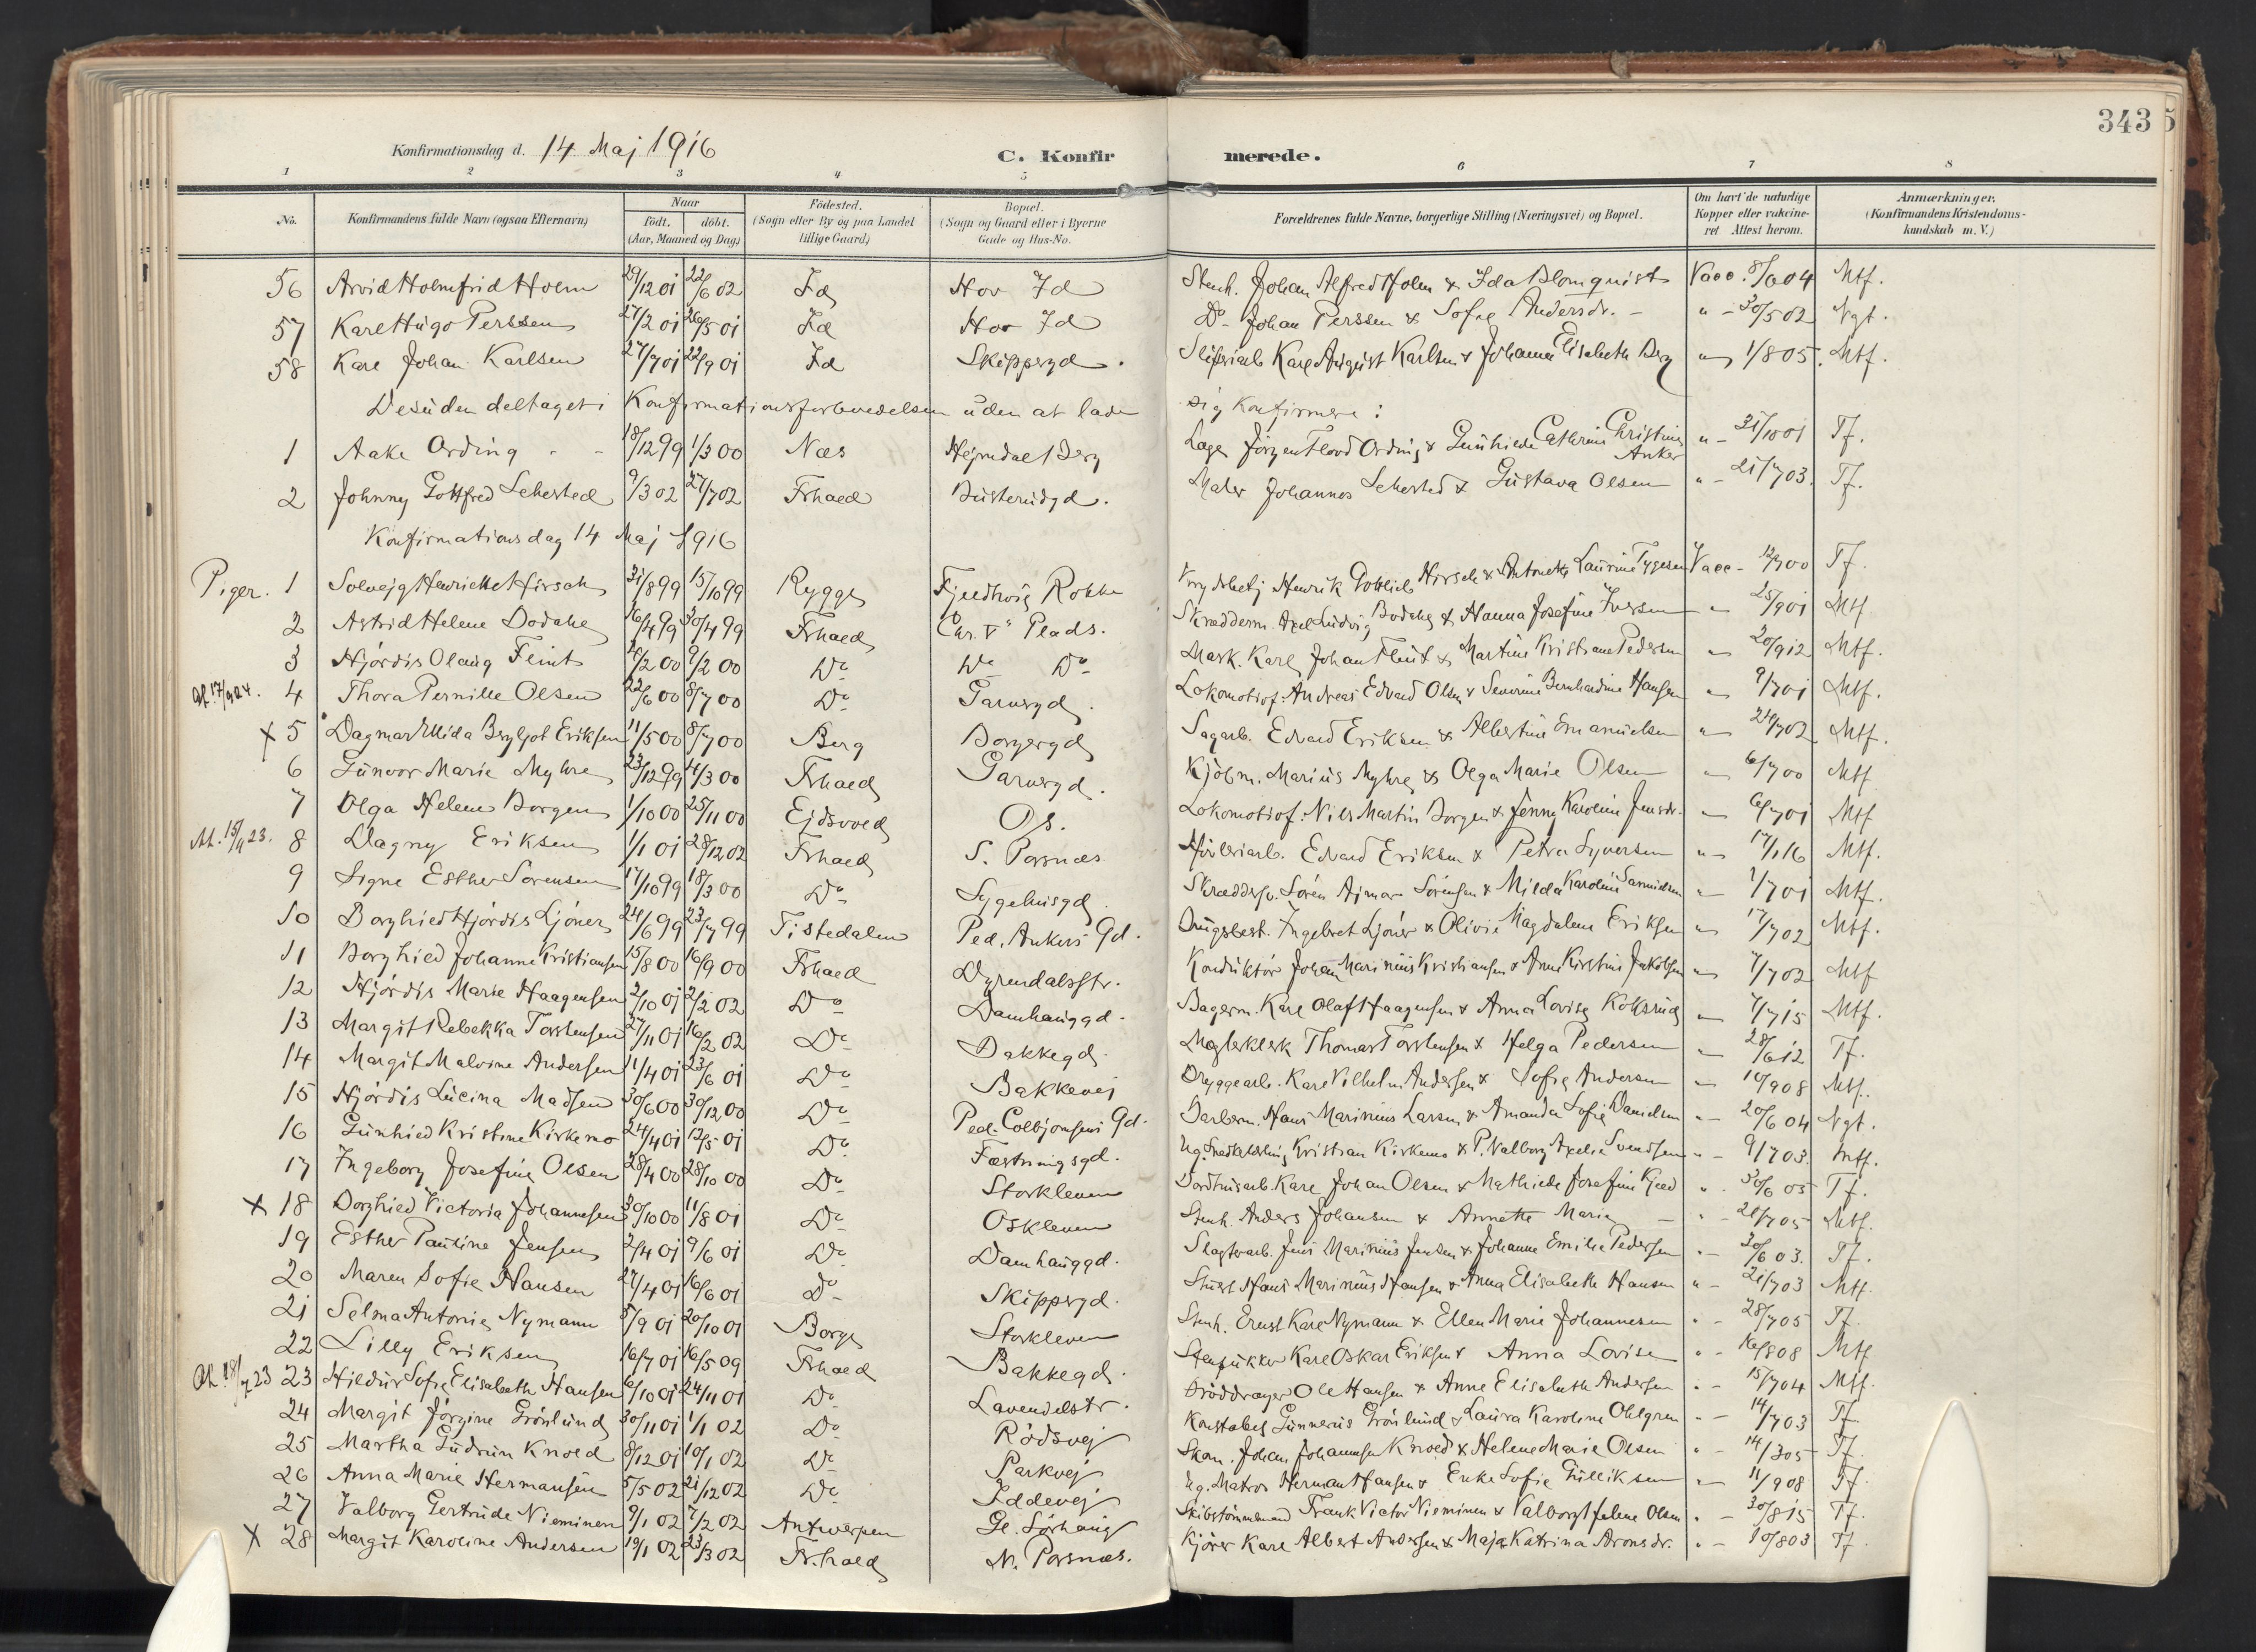 343
Konfirmationsdag d. 14 Maj 1916 C. Konfirmerede.
1 2 3 4 5 6 7 8
No. Konfirmandens fulde Navn (ogsaa Efternavn) Naar født. døbt. (Aar, Maaned og Dag) Fødested. (Sogn eller By og paa Landet tillige Gaard) Bopæl. (Sogn og Gaard eller i Byerne Gade og Hus-No. Forældrenes fulde Navne, borgerlige Stilling (Næringsvei) og Bopæl. Om havt de naturlige Kopper eller vakcineret Attest herom. Anmærkninger. (Konfirmandens Kristendomskundskab m. V.)
56 Arvid Holmfrid Holm 29/12 01 22/6 02 Id Hov Id Stenh. Johan Alfred Holm & Ida Blomquist Vacc. 04 Mtf.
57 Karl Hugo Perssen 27/2 01 26/5 01 Id Hov Id Do - Johan Perssen & Sofie Andersdr. - " - 30/5 02 Ngt.
58 Karl Johan Karlsen 27/7 01 22/9 01 Id Skippergd. Sliperiarb Karl August Karlsen & Johanne Elisabeth Berg " 1/8 05. Mtf.
Desuden deltaget i Konfirmationsforberedelsen uden at lade sig konfirmere :
1 Aake Ording - - 18/12 99 1/3 00 Næs Hejmdal Berg Læge Jörgen Flood Ording & Gunhilde Cathrine Christine Anker " - 31/10 01 Tf.
2 Johnny Gottfred Sehested 9/3 02 27/7 02 Frhald Busterudgd. Maler Johannes Sehested & Gustava Olsen " - 21/7 03. Tf.
Konfirmationsdag 14 Maj 1916
Piger. 1 Solvejg Henriette Hirsch 31/8 99 15/10 99 Rygge Fjeldhvig Rokke Henrik Gottlieb Hirsch & Antonette Laurine Tygesen Vacc - 12/7 00 Tf.
2 Astrid Helene Bodahl 16/4 99 30/4 99 Frhald Chr. V" Plads. Skrædderm. Axel Ludvig Bodahl & Hanna Josefine Iversen " 25/9 01 Mtf
3 Hjördis Olaug Flint 2/2 00 9/2 00 Do Do Do Mask. Karl Johan Flint & Martine Kristiane Pedersen " 20/9 12 Mtf.
17/9 24. 4 Thora Pernille Olsen 22/6 00 8/7 00 Do Garvergd. Lokomotivf. Andreas Edvard Olsen & Severine Bernhardine Hansen " 9/7 01 Mtf.
x 5 Dagmar Elida Bergljot Eriksen 11/5 00 8/7 00 Berg Borgergd Sagarb. Edvard Eriksen & Albertine Emanuelsen " 24/7 02 Mtf.
6 Gunvor Marie Myhre 23/12 99 4/3 00 Frhald Garvergd. Kjöbm. Marius Myhre & Olga Marie Olsen " 6/7 00 Mtf
7 Olga Helene Borgen 1/10 00 25/11 00 Ejdsvold Os. Lokomotivf. Nils Martin Borgen & Jenny Karoline Jensdr. " 6/7 01 Mtf
8 Dagny Eriksen 1/1 01 28/12 02 Frhald S. Porsnæs Hövleriarb. Edvard Eriksen & Petra Syversen " 17/1 16 Mtf.
9 Signe Esther Sorensen 17/10 99 18/3 00 Do Sygehusgd. Skræddersv. Sorén Ajmar Sörensen & Milda Karoline Samuelsen " 1/7 01 Mtf.
10 Borghild Hjördis Ljöner 24/6 99 23/7 99 Tistedalen Ped. Ankers Gd. Brugsbest. Ingebret Ljöner & Olivie Magdalene Eriksen " 17/7 02 Mtf.
11 Borghild Johanne Kristiansen 15/8 00 16/9 00 Frhald Dyrendalsstr. Konduktör Johan Marinius Kristiansen & Anne Kirstine Jakobsen " 7/7 02 Mtf
12 Hjördis Marie Haagensen 2/10 01 2/2 02 Do Damhauggd. Bagerm. Karl Olaf Haagensen & Anna Lovise Koksrud " 7/7 15 Mtf.
13 Margit Rebekka Torstensen 27/11 01 16/2 02 Do Bakkegd. Mæglerklerk Thomas Torstensen & Helga Pedersen " 28/6 12 Tf.
14 Margit Malvine Andersen 11/4 01 23/6 01 Do Bakkevej Bryggearb. Karl Vilhelm Andersen & Sofie Andersen " 10/9 08 Mtf.
15 Hjördis Lucina Madsen 30/6 00 30/12 00 Do Ped. Colbjornsens Gd. Barberm. Hans Marinius Larsen & Amanda Sofie Danielsen " - 20/6 04 Ngt.
16 Gunhild Kristine Kirkemo 24/4 01 12/5 01 Do Fæstningsgd. Kristian Kirkemo & P. Valborg Axelia Svendsen " - 9/7 03. Mtf.
17 Ingeborg Josefine Olsen 28/4 00 28/10 00 Do Storkleven Bordhusarb. Karl Johan Olsen & Mathilde Josefine Kjeld " - 30/6 05 Tf.
x 18 Borghild Victoria Johannesen 30/10 00 11/8 01 Do Oskleven Stenh. Anders Johansen & Annette Marie - " - 21/7 05 Mtf.
19 Esther Pauline Jensen 2/4 01 9/6 01 Do Damhauggd. Slagteriarb. Jens Marinius Jensen & Johanne Emilie Pedersen " - 30/6 03. Tf.
20 Maren Sofie Hansen 27/4 01 16/6 01 Do Skippergd. Stuert Hans Marinius Hansen & Anna Elisabeth Hansen " - 21/7 03 Mtf.
21 Selma Antonie Nymann 5/9 01 20/10 01 Borge Storkleven Stenh. Ernst Karl Nymann & Ellen Marie Johannesen " - 28/7 05 Tf.
22 Lilly Eriksen 16/7 01 16/5 09 Frhald Bakkegd. Karl Oskar Eriksen & Anna Lovise " - 16/8 08 Mtf
23 Hildur Sofie Elisabeth Hansen 6/10 01 24/11 01 Do Lavendelstr. Bröddrager Ole Hansen & Anne Elisabeth Andersen " - 15/7 04 Mtf.
24 Margit Jörgine Grönlund 30/11 01 1/1 02 Do Rödsvej Konstabel Gunnerius Grönlund & Laura Karoline Ohlgren " - 14/7 03 Tf
25 Martha Gudrun Knold 8/12 01 10/1 02 Do Parkvej Skom. Johan Johannsen Knold & Helene Marie Olsen " - 14/3 05 Tf.
26 Anna Marie Hermansen 5/5 02 21/12 02 Do Iddevej Ug. Matros Herman Hansen & Enke Sofie Gulliksen " 11/9 08 Tf.
27 Valborg Gertrude Nieminen 9/1 02 7/2 02 Antwerpen Gl. Sörhaug Skibstömmermand Frank Victor Nieminen & Valborg Helene Olsen " - 30/8 15 Tf.
x 28 Margit Karoline Andersen 19/1 02 23/3 02 Fr.hald N. Porsnæs. Kjörer Karl Albert Andersen & Maja Katrina Aronsdr. " - 10/8 03 Tf.